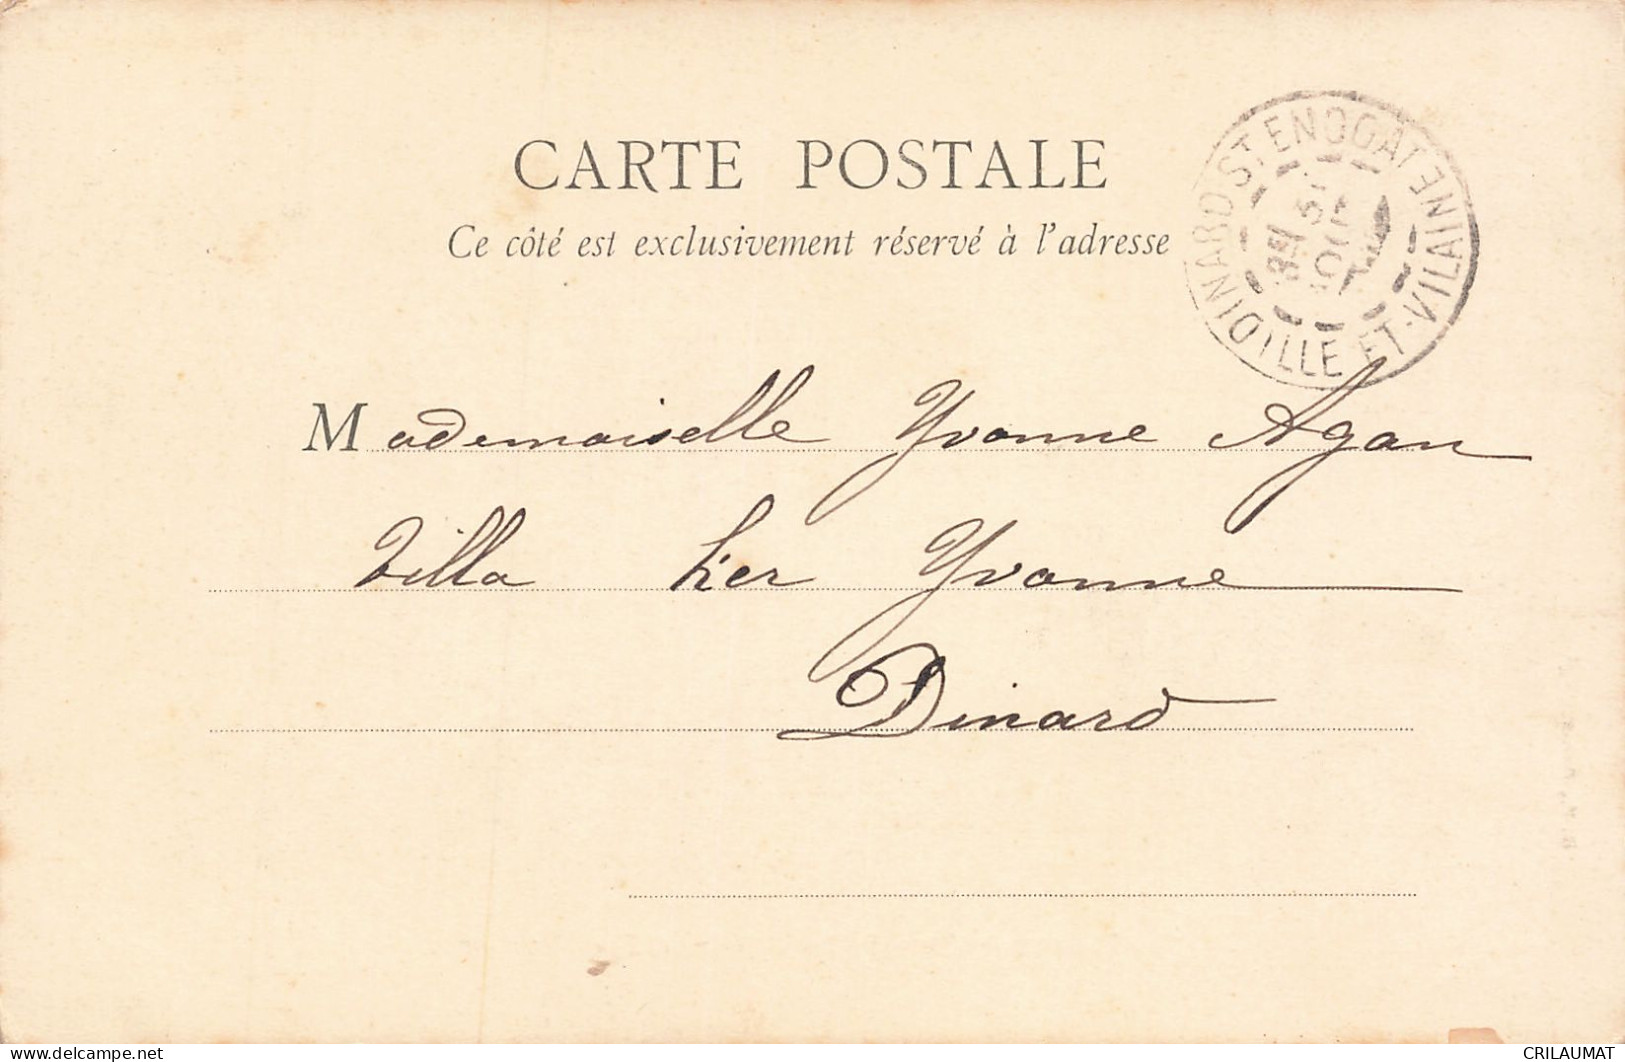 CARTE POSTALE
Ce côté est exclusivement réservé à l'adresse
DINARD ST ENOGAT
ILLE-ET-VILAINE
Mademoiselle Yvonne Agan
Villa Ker Yvonne
Dinard
www.delcampe.net
CRILAUMAT